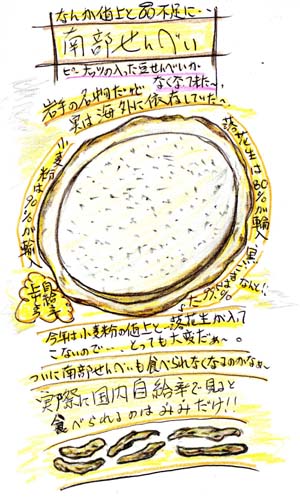 なんか値上と品不足に・・
南部せんべい
ピーナッツの入った豆せんべいが
なくなって来た〜
岩手の名物だけど
実は海外に依存していた〜
小麦粉は90%が輸入
落花生は80%が輸入
なんと!!
自給率
上げよう
今年は小麦粉の値上と落花生が入って
こないので・・・とっても大変だぁ〜。
ついに南部せんべいも食べられなくなるのかなぁ〜
実際に国内自給率で見ると
食べられるのはみみだけ!!